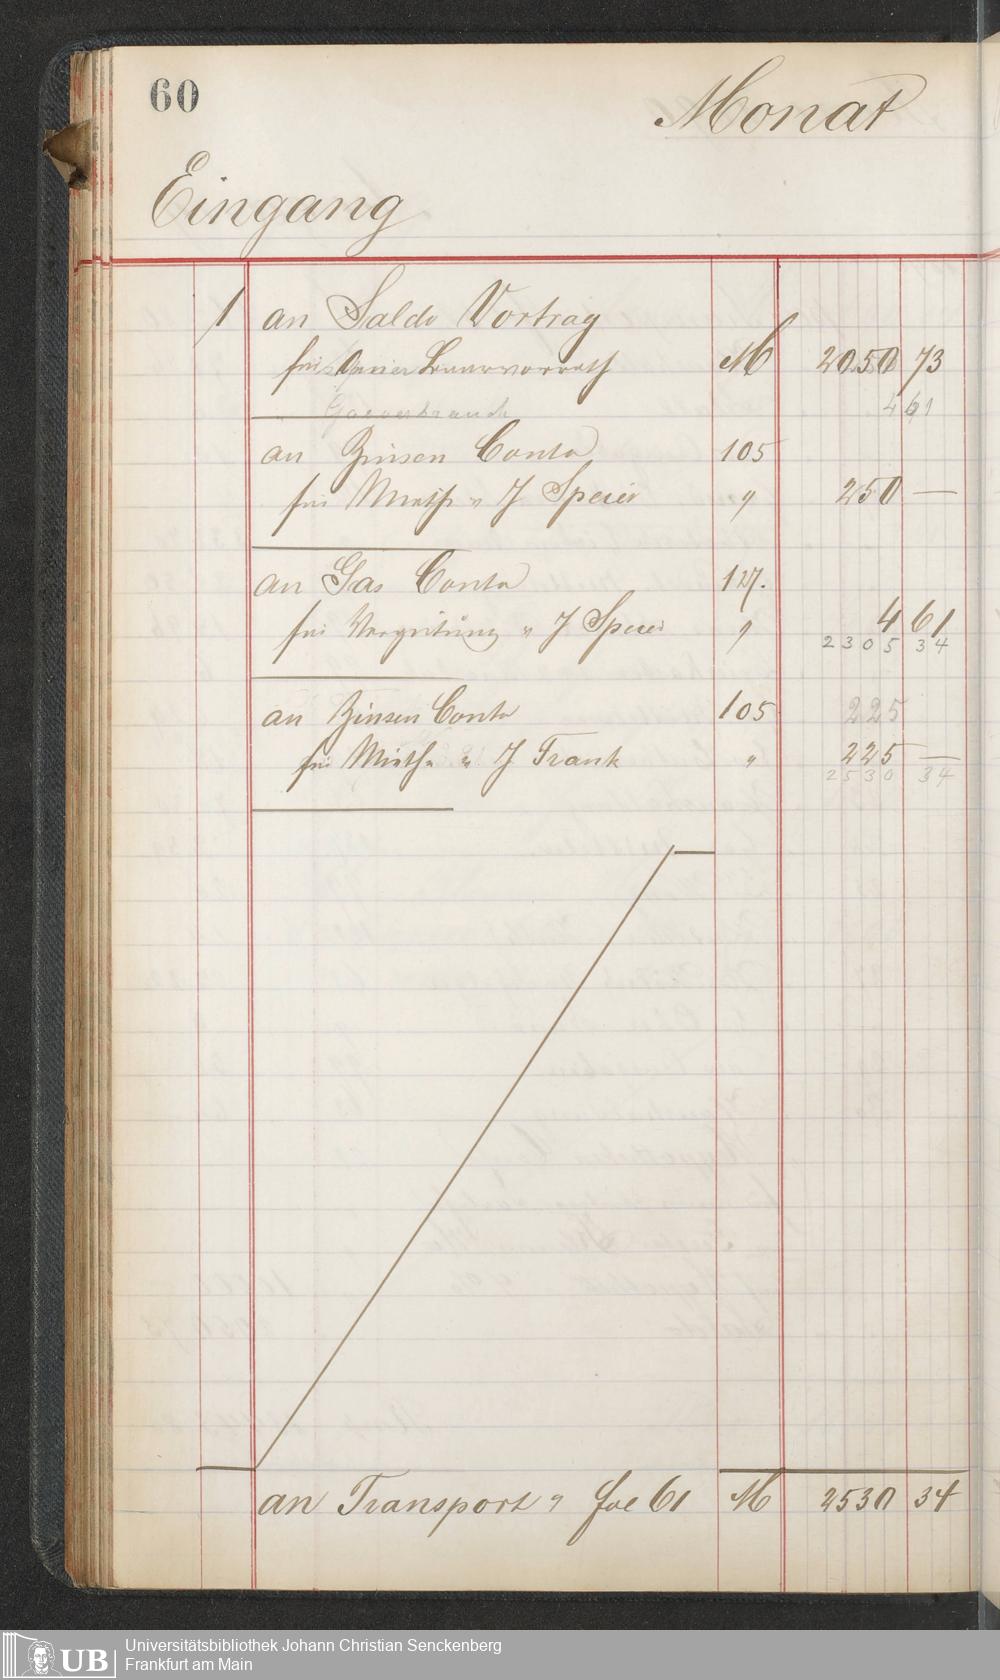 60
Monat
Eingang
1 an Saldo Vortrag
für Baarvorrath M 2050 73
Gasverbrauch 4 61
an Zinsen Conto 105
für Miethe v J Speier " 250 —
an Gas Conto 127.
für Vergütung v J Speier " 4 61
2305 34
an Zinsen Conto 105 225
für Miethe v J Frank " 225 —
2530 34
an Transport a foe 61 M 2530 34
UB
Universitätsbibliothek Johann Christian Senckenberg
Frankfurt am Main